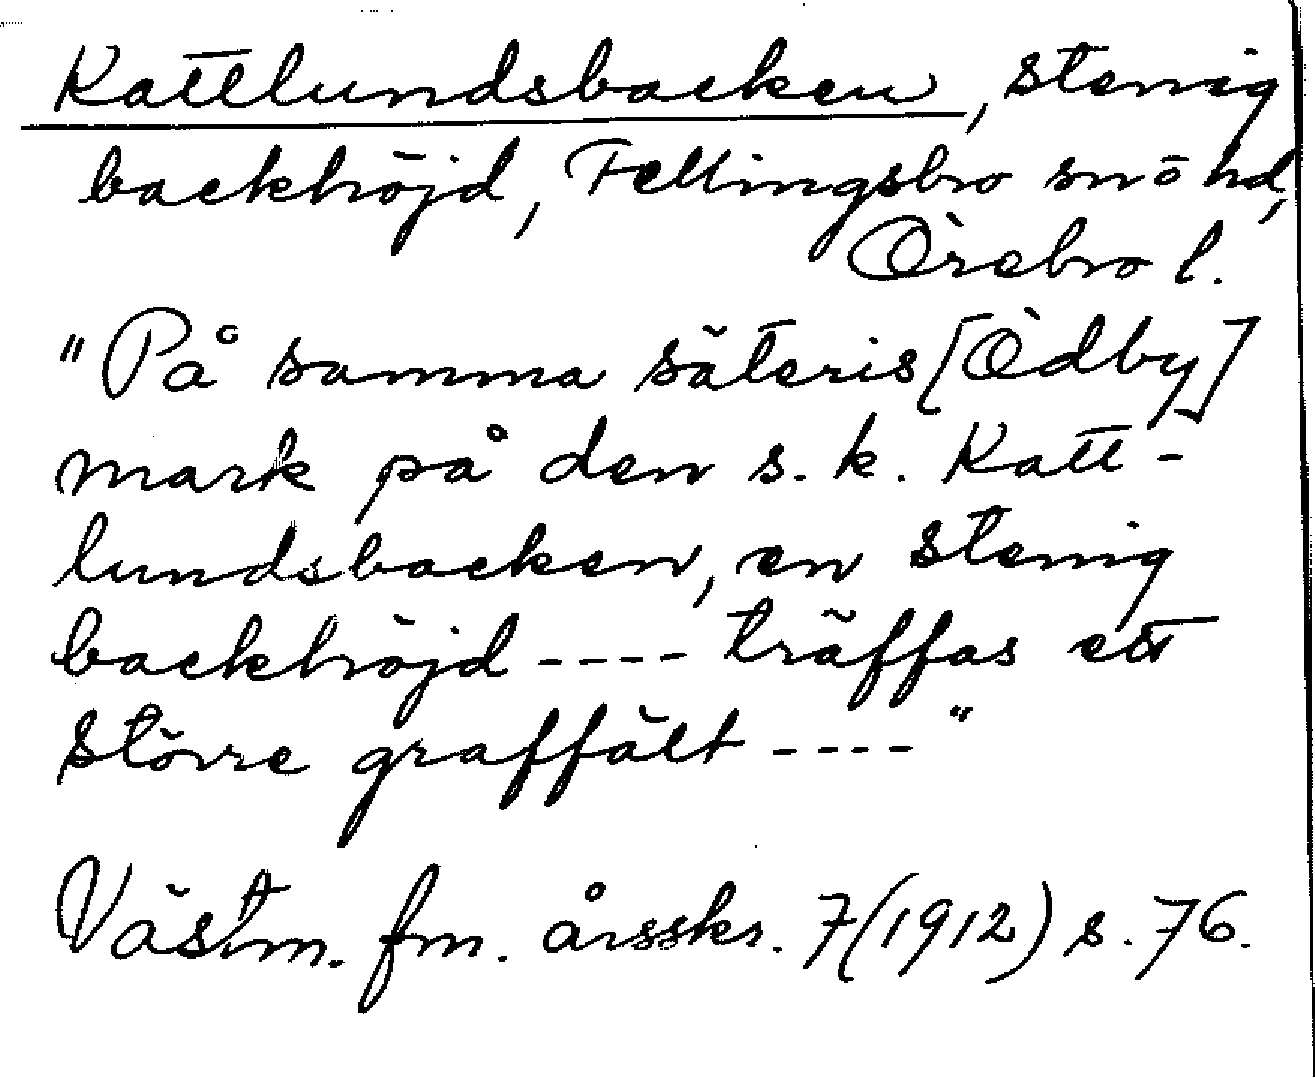 Kattlundsbacken, stenig
backhöjd, Fellingsbro sn o hd,
Örebro l.
"På samma säteris [Ödby]
mark på den s. k. Katt-
lundsbacken, en stenig
backhöjd ---- träffas ett
större graffält ----"
Västm. fm. årsskr. 7 (1912) s. 76.